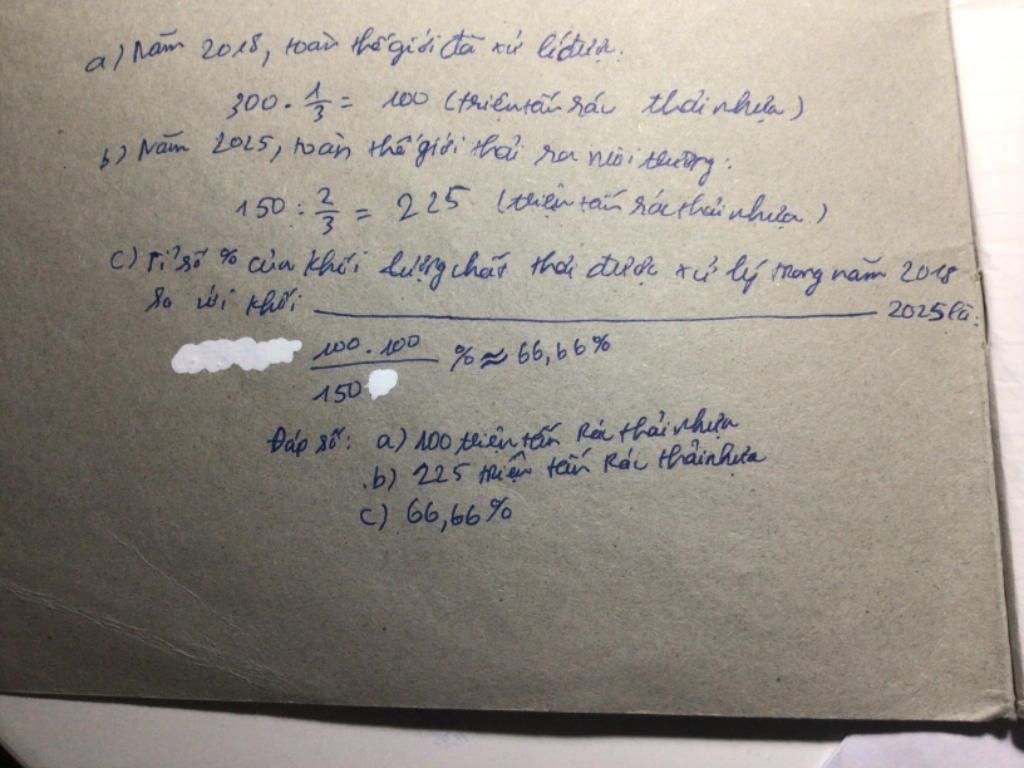 a) Năm 2018, toàn thế giới đã xử lí được:
300 . 1/3 = 100 (triệu tấn rác thải nhựa)
b) Năm 2025, toàn thế giới thải ra môi trường:
150 : 2/3 = 225 (triệu tấn rác thải nhựa)
c) Tỉ số % của khối lượng chất thải được xử lý trong năm 2018
so với khối ——— 2025 là:
100 . 100 / 150 % ≈ 66,66%
Đáp số: a) 100 triệu tấn Rác thải nhựa
b) 225 triệu tấn Rác thải nhựa
c) 66,66%